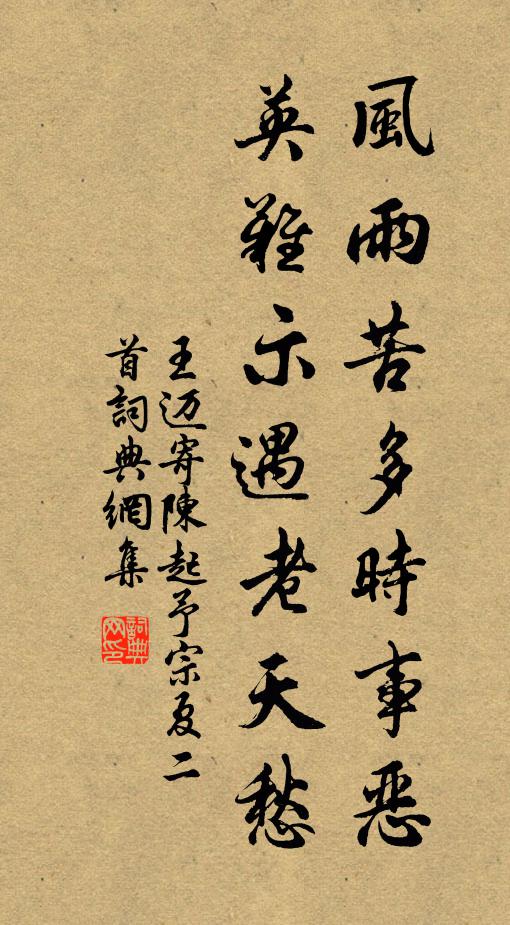 風雨苦多時事惡
英難示遇老天愁
王迈寄陳起予宗夏二
首詞典網集
詞典网印